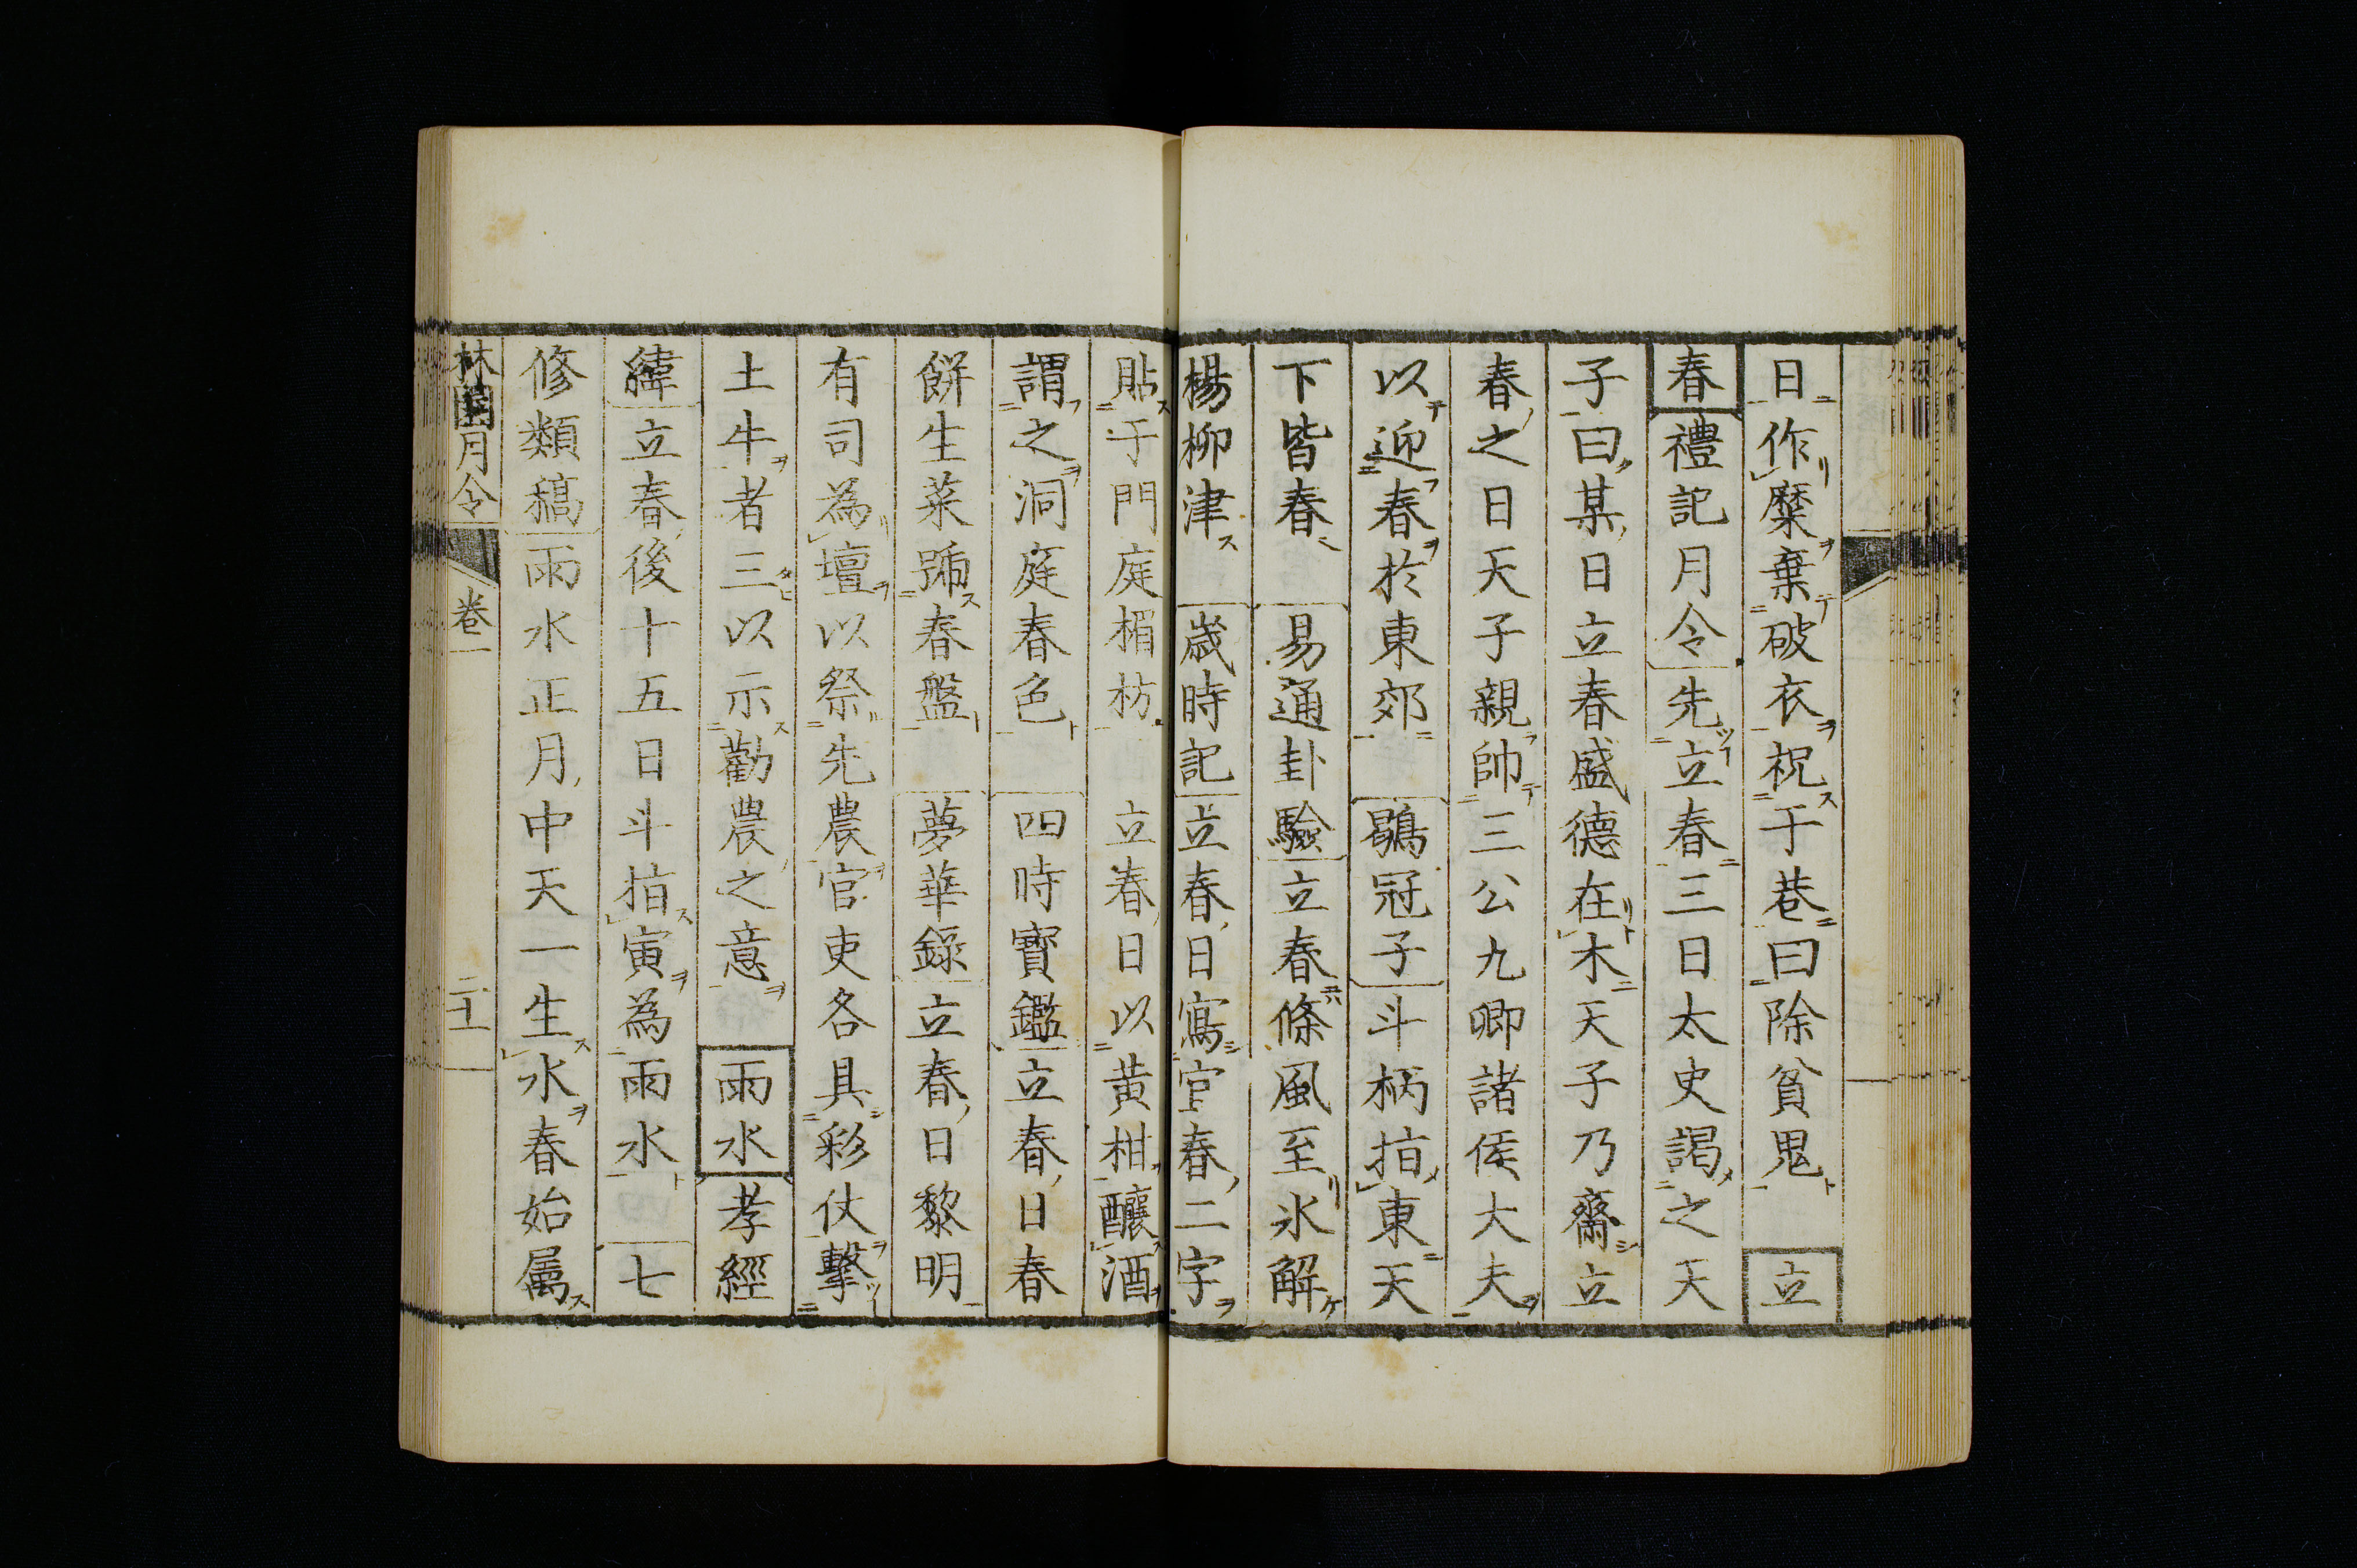 日作糜棄破衣祝于巷曰除貧鬼 立
春禮記月令先立春三日太史謁之天
子曰某日立春盛德在木天子乃齋立
春之日天子親帥三公九卿諸侯大夫
以迎春於東郊 鶡冠子斗柄指東天
下皆春 易通卦驗立春條風至氷解
楊柳津 歲時記立春日寫宜春二字
貼于門庭楣枋 立春日以黃柑釀酒
謂之洞庭春色 四時寶鑑立春日春
餅生菜號春盤 夢華錄立春日黎明
有司為壇以祭先農官吏各具彩仗擊
土牛者三以示勸農之意 雨水孝經
緯立春後十五日斗指寅為雨水 七
修類稿雨水正月中天一生水春始属
林園月令 卷一 二十一